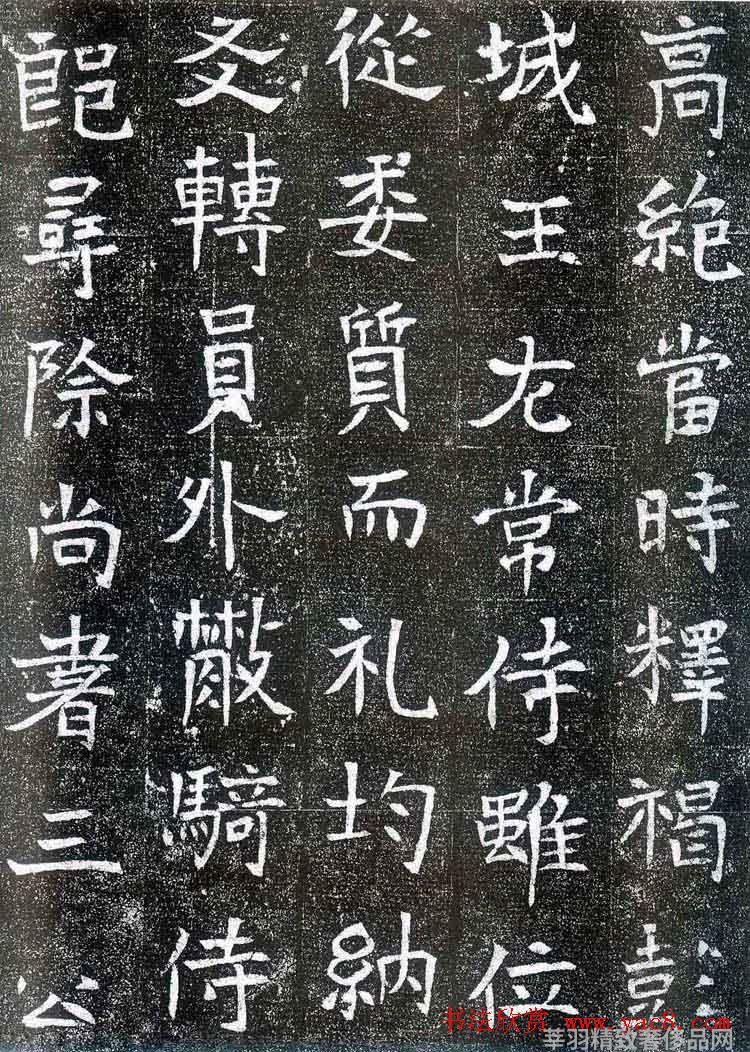 高絶當時釋褐彭
城王左常侍雖位
從委質而礼均納
叐轉員外散騎侍
郎尋除尚書三公
书法欣赏 www.yac8.com
莘羽精致奢侈品网